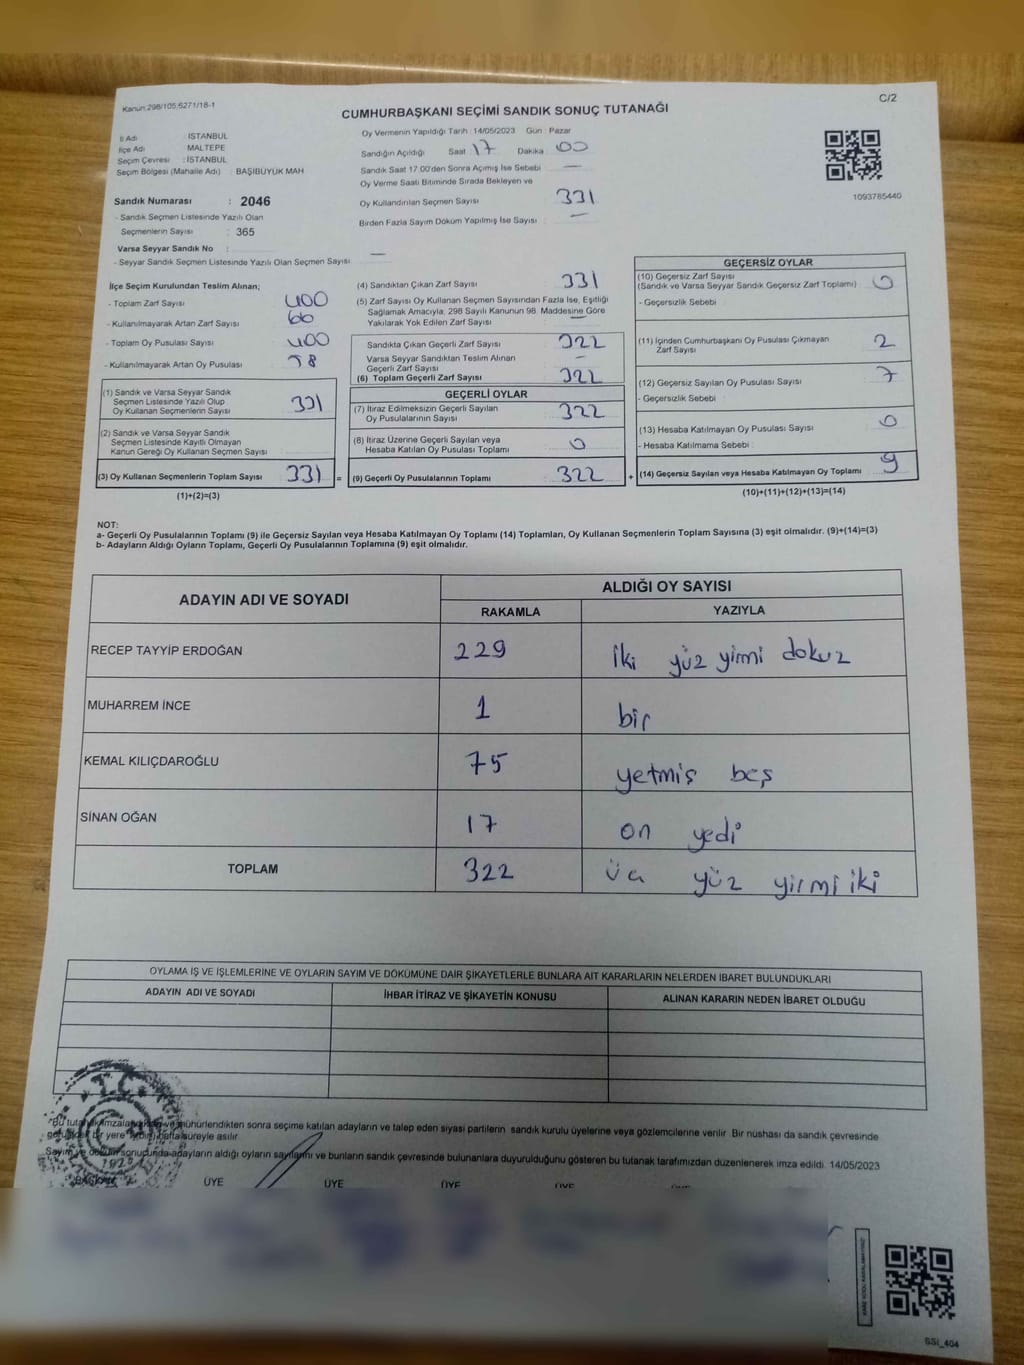 Kanun:298/105,6271/18-1
C/2
CUMHURBAŞKANI SEÇİMİ SANDIK SONUÇ TUTANAĞI
İl Adı : İSTANBUL
İlçe Adı MALTEPE
Seçim Çevresi : İSTANBUL
Seçim Bölgesi (Mahalle Adı) : BAŞIBÜYÜK MAH
Sandık Numarası : 2046
- Sandık Seçmen Listesinde Yazılı Olan
Seçmenlerin Sayısı : 365
Varsa Seyyar Sandık No :
- Seyyar Sandık Seçmen Listesinde Yazılı Olan Seçmen Sayısı —
Oy Vermenin Yapıldığı Tarih : 14/05/2023 Gün : Pazar
Sandığın Açıldığı Saat 17 Dakika 00
Sandık Saat 17:00'den Sonra Açımış İse Sebebi —
Oy Verme Saati Bitiminde Sırada Bekleyen ve
Oy Kullandırılan Seçmen Sayısı 331
Birden Fazla Sayım Döküm Yapılmış İse Sayısı —
1093785440
İlçe Seçim Kurulundan Teslim Alınan;
- Toplam Zarf Sayısı 400
- Kullanılmayarak Artan Zarf Sayısı 66
- Toplam Oy Pusulası Sayısı 400
- Kullanılmayarak Artan Oy Pusulası 38
(1) Sandık ve Varsa Seyyar Sandık
Seçmen Listesinde Yazılı Olup
Oy Kullanan Seçmenlerin Sayısı 331
(2) Sandık ve Varsa Seyyar Sandık
Seçmen Listesinde Kayıtlı Olmayan
Kanun Gereği Oy Kullanan Seçmen Sayısı
(3) Oy Kullanan Seçmenlerin Toplam Sayısı 331 =
(1)+(2)=(3)
(4) Sandıktan Çıkan Zarf Sayısı 331
(5) Zarf Sayısı Oy Kullanan Seçmen Sayısından Fazla İse, Eşitliği
Sağlamak Amacıyla, 298 Sayılı Kanunun 98. Maddesine Göre
Yakılarak Yok Edilen Zarf Sayısı —
Sandıkta Çıkan Geçerli Zarf Sayısı 322
Varsa Seyyar Sandıktan Teslim Alınan
Geçerli Zarf Sayısı —
(6) Toplam Geçerli Zarf Sayısı 322
GEÇERLİ OYLAR
(7) İtiraz Edilmeksizin Geçerli Sayılan
Oy Pusulalarının Sayısı 322
(8) İtiraz Üzerine Geçerli Sayılan veya
Hesaba Katılan Oy Pusulası Toplamı 0
(9) Geçerli Oy Pusulalarının Toplamı 322 +
GEÇERSİZ OYLAR
(10) Geçersiz Zarf Sayısı
(Sandık ve Varsa Seyyar Sandık Geçersiz Zarf Toplamı) 0
- Geçersizlik Sebebi :
(11) İçinden Cumhurbaşkanı Oy Pusulası Çıkmayan
Zarf Sayısı 2
(12) Geçersiz Sayılan Oy Pusulası Sayısı 7
- Geçersizlik Sebebi :
(13) Hesaba Katılmayan Oy Pusulası Sayısı 0
- Hesaba Katılmama Sebebi :
(14) Geçersiz Sayılan veya Hesaba Katılmayan Oy Toplamı 9
(10)+(11)+(12)+(13)=(14)
NOT:
a- Geçerli Oy Pusulalarının Toplamı (9) ile Geçersiz Sayılan veya Hesaba Katılmayan Oy Toplamı (14) Toplamları, Oy Kullanan Seçmenlerin Toplam Sayısına (3) eşit olmalıdır. (9)+(14)=(3)
b- Adayların Aldığı Oyların Toplamı, Geçerli Oy Pusulalarının Toplamına (9) eşit olmalıdır.
ADAYIN ADI VE SOYADI
ALDIĞI OY SAYISI
RAKAMLA YAZIYLA
RECEP TAYYİP ERDOĞAN 229 iki yüz yirmi dokuz
MUHARREM İNCE 1 bir
KEMAL KILIÇDAROĞLU 75 yetmiş beş
SİNAN OĞAN 17 on yedi
TOPLAM 322 üç yüz yirmi iki
OYLAMA İŞ VE İŞLEMLERİNE VE OYLARIN SAYIM VE DÖKÜMÜNE DAİR ŞİKAYETLERLE BUNLARA AİT KARARLARIN NELERDEN İBARET BULUNDUKLARI
ADAYIN ADI VE SOYADI İHBAR İTİRAZ VE ŞİKAYETİN KONUSU ALINAN KARARIN NEDEN İBARET OLDUĞU
T.C.
1923
Bu mühürlendikten sonra seçime katılan adayların ve talep eden siyasi partilerin sandık kurulu üyelerine veya gözlemcilerine verilir. Bir nüshası da sandık çevresinde
bir yere süreyle asılır.
Sayım ve döküm sonucunda adayların aldığı oyların sayılarını ve bunların sandık çevresinde bulunanlara duyurulduğunu gösteren bu tutanak tarafımızdan düzenlenerek imza edildi. 14/05/2023
BAŞKAN ÜYE ÜYE ÜYE ÜYE
SSI_404